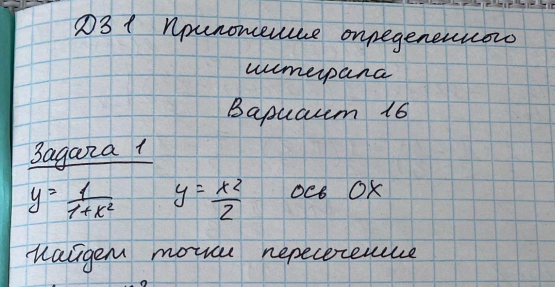 ДЗ 1 Приложения определенного
интеграла
Вариант 16
Задача 1
y = 1/(1+x²) y = x²/2 ось OX
Найдем точки пересечение